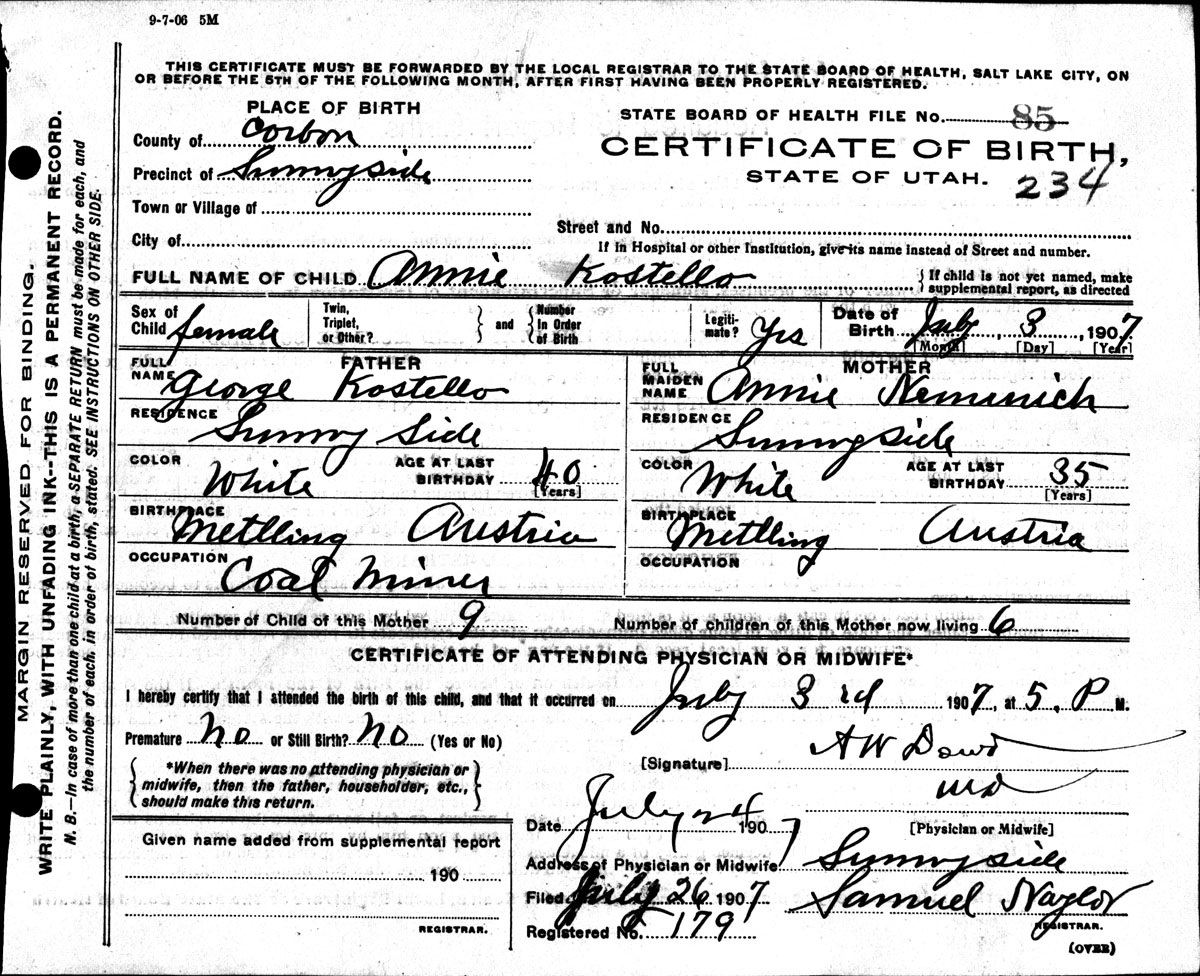 9-7-06 5M
THIS CERTIFICATE MUST BE FORWARDED BY THE LOCAL REGISTRAR TO THE STATE BOARD OF HEALTH, SALT LAKE CITY, ON
OR BEFORE THE 5TH OF THE FOLLOWING MONTH, AFTER FIRST HAVING BEEN PROPERLY REGISTERED.
PLACE OF BIRTH
County of Corbon
Precinct of Sunnyside
Town or Village of
City of
STATE BOARD OF HEALTH FILE No. 85
CERTIFICATE OF BIRTH,
STATE OF UTAH. 234
Street and No.
If in Hospital or other Institution, give its name instead of Street and number.
FULL NAME OF CHILD Annie Kostello { If child is not yet named, make
supplemental report, as directed
Sex of Child female
Twin, Triplet, or Other? } and { Number in Order of Birth
Legitimate? Yes
Date of Birth July 3, 1907
[Month] [Day] [Year]
FATHER
FULL NAME George Kostello
RESIDENCE Sunny Side
COLOR White AGE AT LAST BIRTHDAY 40
[Years]
BIRTHPLACE Metlling Austria
OCCUPATION Coal Miner
MOTHER
FULL MAIDEN NAME Annie Nemanich
RESIDENCE Sunnyside
COLOR White AGE AT LAST BIRTHDAY 35
[Years]
BIRTHPLACE Metlling Austria
OCCUPATION
Number of Child of this Mother 9 Number of children of this Mother now living 6
CERTIFICATE OF ATTENDING PHYSICIAN OR MIDWIFE*
I hereby certify that I attended the birth of this child, and that it occurred on July 3rd 1907, at 5, P M.
Premature No or Still Birth? No (Yes or No)
{ *When there was no attending physician or
midwife, then the father, householder, etc.,
should make this return. }
[Signature] A W Dowd
MD
[Physician or Midwife]
Given name added from supplemental report
190
REGISTRAR.
Date July 24 1907
Address of Physician or Midwife Sunnyside
Filed July 26 1907 Samuel Naylor
REGISTRAR.
Registered No. 179
(OVER)
MARGIN RESERVED FOR BINDING.
WRITE PLAINLY, WITH UNFADING INK--THIS IS A PERMANENT RECORD.
N. B.—In case of more than one child at a birth, a SEPARATE RETURN must be made for each, and
the number of each, in order of birth, stated. SEE INSTRUCTIONS ON OTHER SIDE.